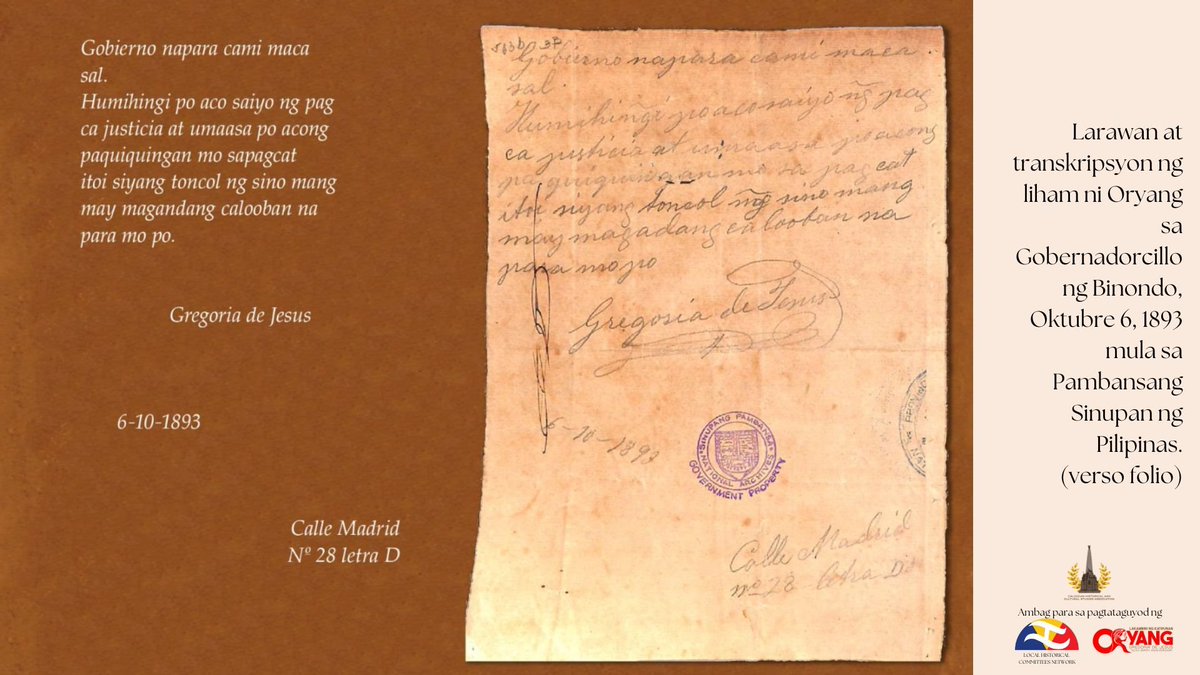 Gobierno napara cami maca
sal.
Humihingi po aco saiyo ng pag
ca justicia at umaasa po acong
paquiquingan mo sapagcat
itoi siyang toncol ng sino mang
may magandang calooban na
para mo po.
Gregoria de Jesus
6-10-1893
Calle Madrid
Nº 28 letra D
37
Gobierno napara cami maca
sal.
Humihiñgi po aco saiyo ñg pag
ca justicia at umaasa po acong
mo sa pag cat
itoi siyang toncol ñg sino mang
may magadang calooban na
para mo po
Gregoria de Jesus
6-10-1893
SINUPANG PAMBANSA
NATIONAL ARCHIVES
GOVERNMENT PROPERTY
Calle Madrid
nº 28 letra D
Larawan at
transkripsyon ng
liham ni Oryang
sa
Gobernadorcillo
ng Binondo,
Oktubre 6, 1893
mula sa
Pambansang
Sinupan ng
Pilipinas.
(verso folio)
CALOOCAN HISTORICAL AND
CULTURAL STUDIES ASSOCIATION
Ambag para sa pagtataguyod ng
LOCAL HISTORICAL
COMMITTEES NETWORK
ORYANG